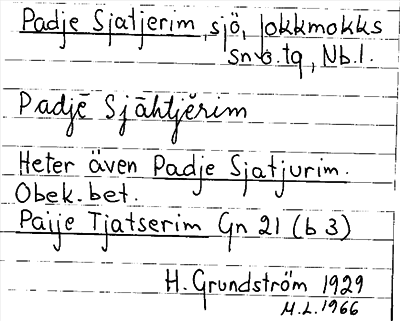 Padje Sjatjerim, sjö, Jokkmokks
sn o. tg, Nb.l.
Padjē Sjāhtjĕrim
Heter även Padje Sjatjurim.
Obek. bet.
Paije Tjatserim Gn 21 (b 3)
H. Grundström 1929
M.L. 1966